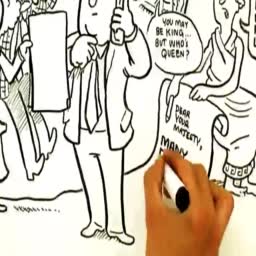 YOU MAY
BE KING...
BUT WHO'S
QUEEN?
DEAR
YOUR
MAJESTY,
MANY